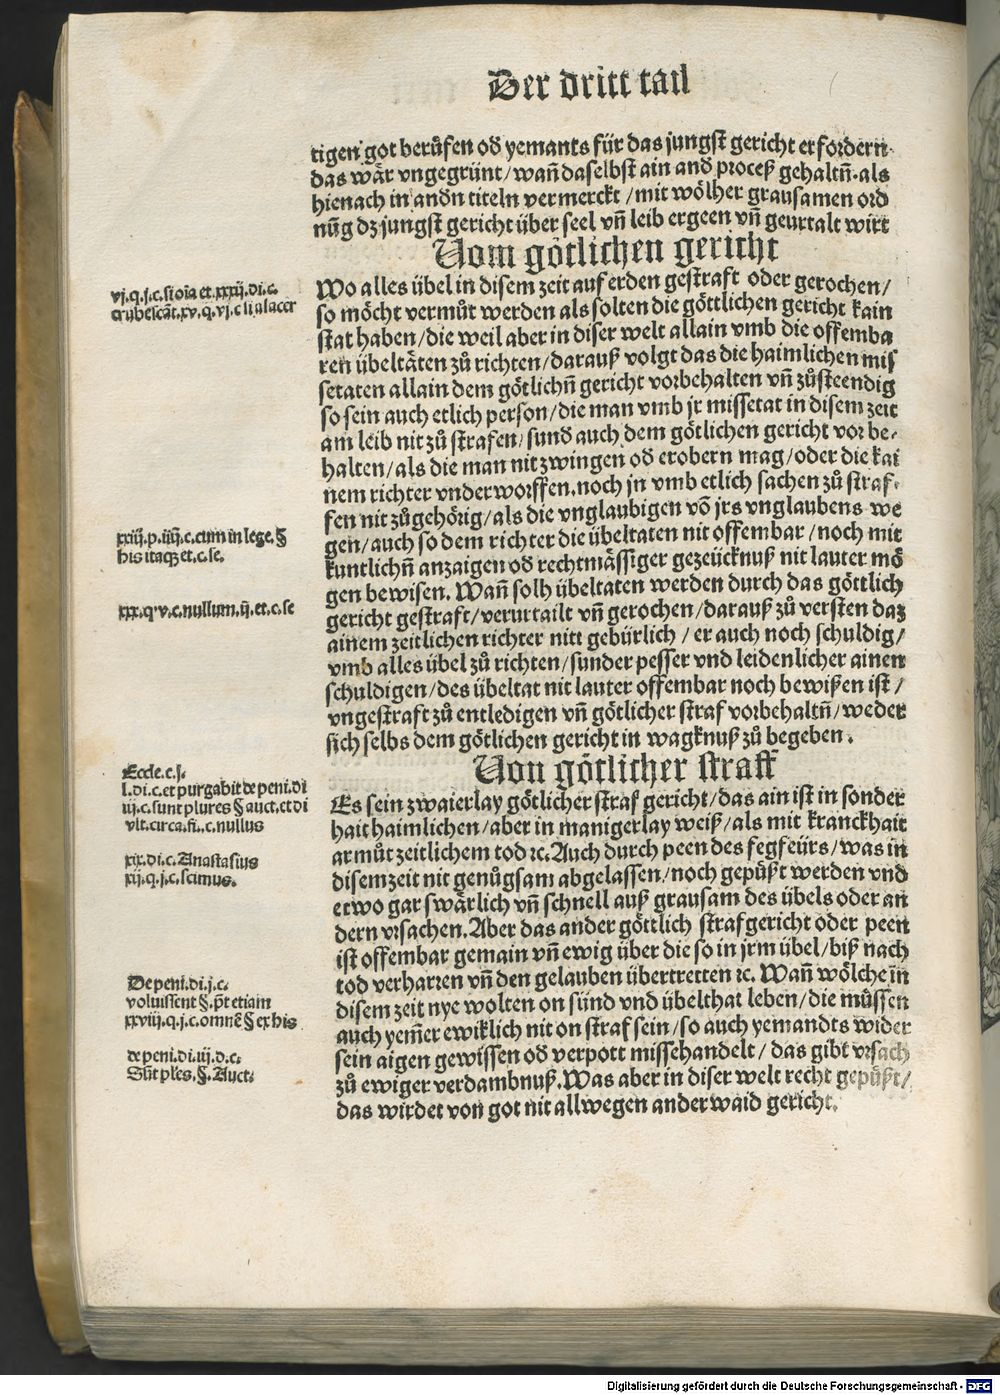 Der dritt tail
tigen got berůfen od yemants für das jungst gericht erfordern
das wär vngegrünt/wañ daselbst ain and proceß gehaltñ. als
hienach in andn titeln vermerckt/mit wölher grausamen ord
nũg dz jungst gericht über seel vñ leib ergeen vñ geurtalt wirt
Vom götlichen gericht
Wo alles übel in disem zeit auf erden gestraft oder gerochen/
so möcht vermůt werden als solten die göttlichen gericht kain
stat haben/die weil aber in diser welt allain vmb die offemba
ren übeltäten zů richten/darauß volgt das die haimlichen mis
setaten allain dem götlichñ gericht vorbehalten vñ zůsteendig
so sein auch etlich person/die man vmb jr missetat in disem zeit
am leib nit zů strafen/sund auch dem götlichen gericht vor be-
halten/als die man nit zwingen od erobern mag/oder die kai
nem richter vnderworffen.noch jn vmb etlich sachen zů straf-
fen nit zůgehörig/als die vnglaubigen võ jrs vnglaubens we
gen/auch so dem richter die übeltaten nit offembar/noch mit
kuntlichñ anzaigen od rechtmässiger gezeücknuß nit lauter mö
gen bewisen. Wañ solh übeltaten werden durch das göttlich
gericht gestraft/verurtailt vñ gerochen/darauß zů versten daz
ainem zeitlichen richter nitt gebürlich/er auch noch schuldig/
vmb alles übel zů richten/sunder pesser vnd leidenlicher ainen
schuldigen/des übeltat nit lauter offembar noch bewißen ist/
vngestraft zů entledigen vñ götlicher straf vorbehaltñ/weder
sich selbs dem götlichen gericht in wagknuß zů begeben.
Von götlicher straff
Es sein zwaierlay götlicher straf gericht/das ain ist in sonder
hait haimlichen/aber in manigerlay weiß/als mit kranckhait
armůt zeitlichem tod ꝛc. Auch durch peen des fegfeürs/was in
disem zeit nit genůgsam abgelassen/noch gepüßt werden vnd
etwo gar swärlich vñ schnell auß grausam des übels oder an
dern vrsachen. Aber das ander göttlich strafgericht oder peen
ist offembar gemain vñ ewig über die so in jrm übel/biß nach
tod verharren vñ den gelauben übertretten ꝛc. Wañ wölche in
disem zeit nye wolten on sünd vnd übelthat leben/die müssen
auch yem̃er ewiklich nit on straf sein/so auch yemandts wider
sein aigen gewissen od verpott missehandelt/das gibt vrsach
zů ewiger verdambnuß.Was aber in diser welt recht gepüßt/
das wirdet von got nit allwegen anderwaid gericht.
vj.q.j.c.si oīa et.xxxij.di.c.
erubescãt.xv.q.vj.c si alacer
xxiij.p.iiij.c.cum in lege.§
his itaqz et.c.se.
xxx.q.v.c.nullum.ij.et.c.se
Eccle.c.j.
l.di.c.et purgabit de peni.di
iij.c.sunt plures § auct.et di
vlt.circa.fi.c.nullus
xix.di.c.Anastasius
xij.q.j.c.scimus.
De peni.di.j.c.
voluissent §.p̃t etiam
xxviij.q.j.c.omnẽ § ex his
de peni.di.iij.d.c.
Sũt ples.§.Auct.
Digitalisierung gefördert durch die Deutsche Forschungsgemeinschaft - DFG